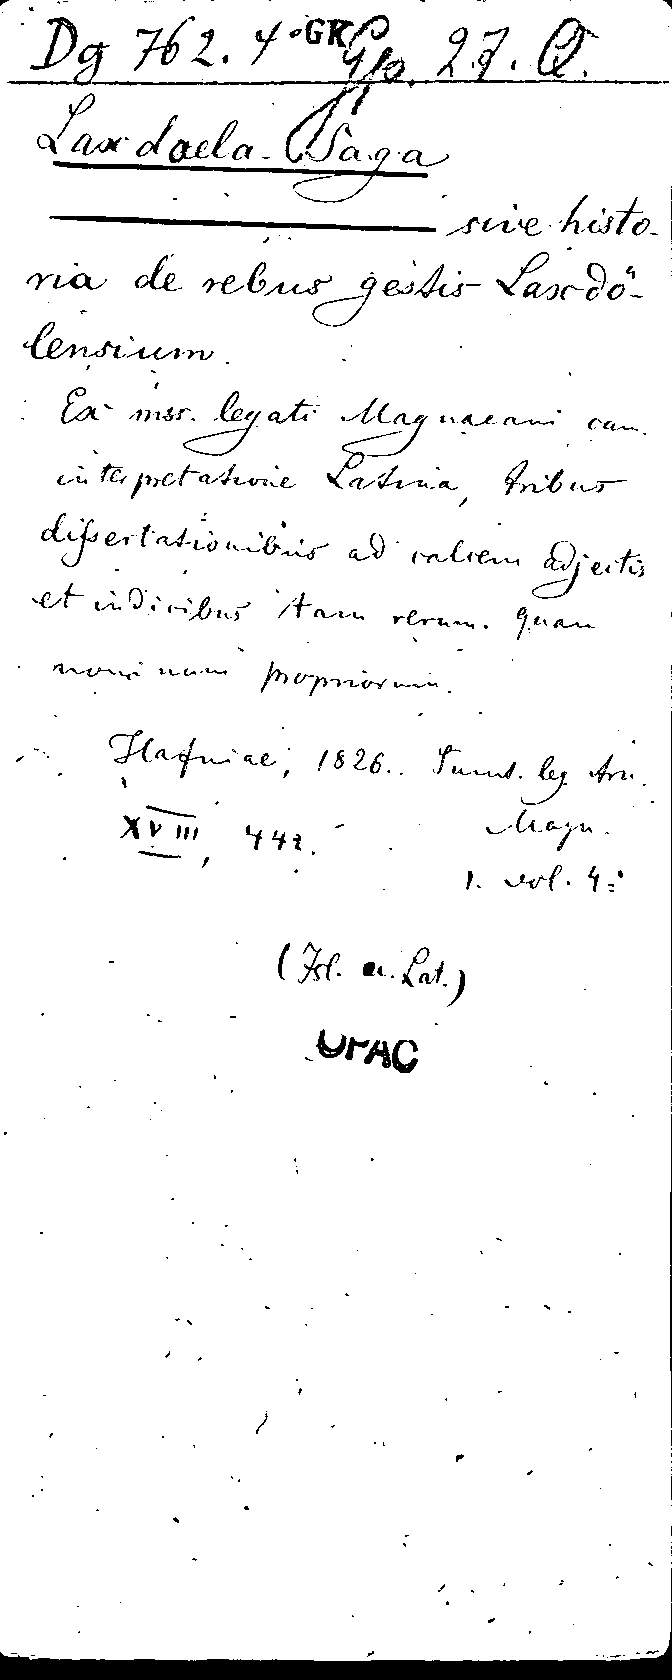 Dg 762. 4° GR 27. Q.
Laxdaela-Saga
sive histo-
ria de rebus gestis Laxdö-
lensium.
Ex mss. legati Magnaeani cum
interpretatione Latina, tribus
dissertationibus ad calcem adjectis
et indicibus tam rerum quam
nominum propriorum.
Hafniae, 1826. Sumt. leg. Arn.
Magn.
XVIII, 442.
1. vol. 4°
(Isl. u. Lat.)
UFAC